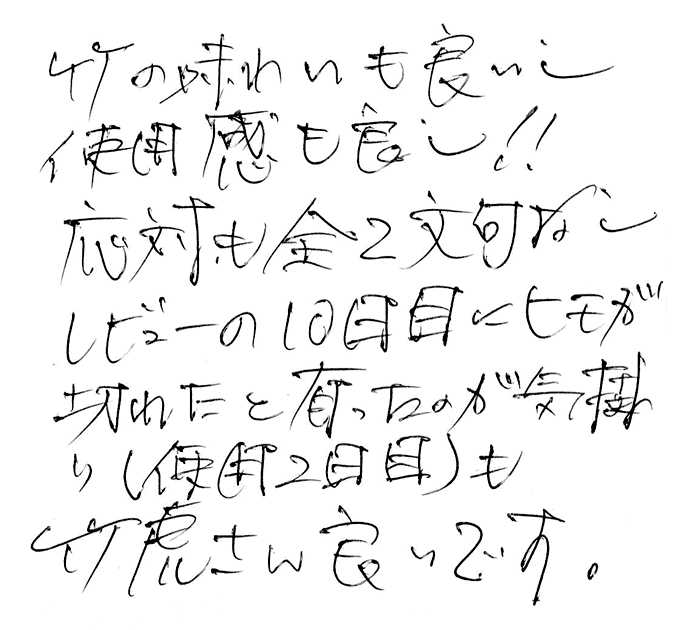 竹の味わいも良いし
使用感も良し!!
応対も全て文句なし
レビューの10日目にヒモが
切れたと有ったのが気掛
り(使用2日目)も
竹虎さん良いです。